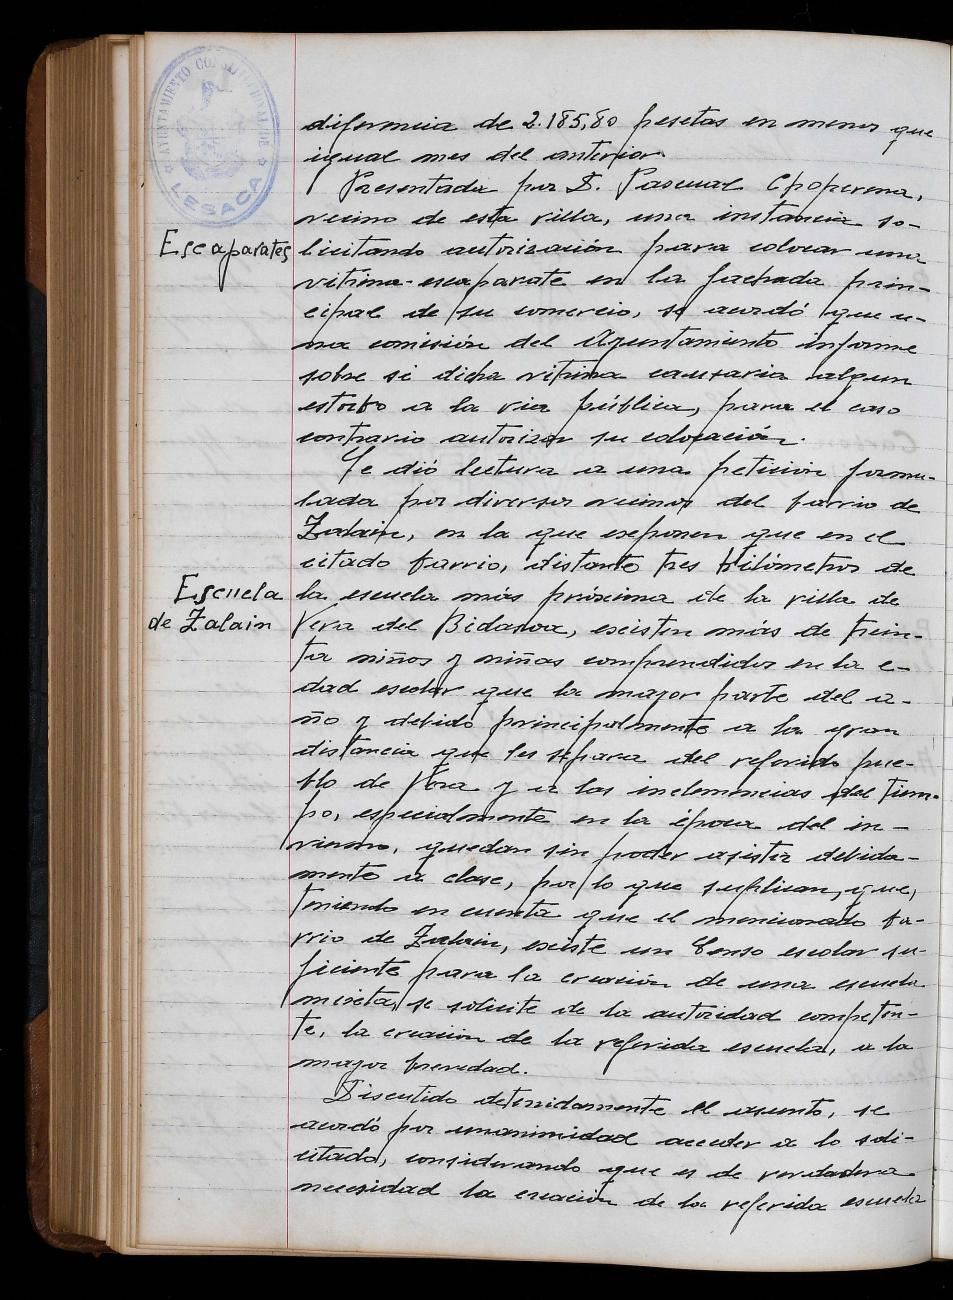 AYUNTAMIENTO CONSTITUCIONAL DE
LESACA
diferencia de 2.185,80 pesetas en menos que
igual mes del anterior.
Presentada por D. Pascual Epoperena,
vecino de esta villa, una instancia so-
Escaparates
licitando autorización para colocar una
vitrina-escaparate en la fachada prin-
cipal de su comercio, se acordó que u-
na comisión del Ayuntamiento informe
sobre si dicha vitrina causaria algun
estorbo a la via pública, para el caso
contrario autorizar su colocación.
Se dió lectura a una petición formu-
lada por diversos vecinos del barrio de
Zalain, en la que exponen que en el
citado barrio, distante tres kilómetros de
Escuela
de Zalain
la escuela más proxima de la villa de
Vera del Bidasoa, existen más de trein-
ta niños y niñas comprendidos en la e-
dad escolar que la mayor parte del a-
ño y debido principalmente a la gran
distancia que les separa del referido pue-
blo de Vera y a las inclemencias del tiem-
po, especialmente en la época del in-
vierno, quedan sin poder asistir debida-
mente a clase, por lo que suplican, que,
teniendo en cuenta que el mencionado ba-
rrio de Zalain, existe un Censo escolar su-
ficiente para la creación de una escuela
mixta, se solicite de la autoridad competen-
te, la creación de la referida escuela, a la
mayor brevedad.
Discutido detenidamente el asunto, se
acordó por unanimidad acceder a lo soli-
citado, considerando que es de verdadera
necesidad la creación de la referida escuela